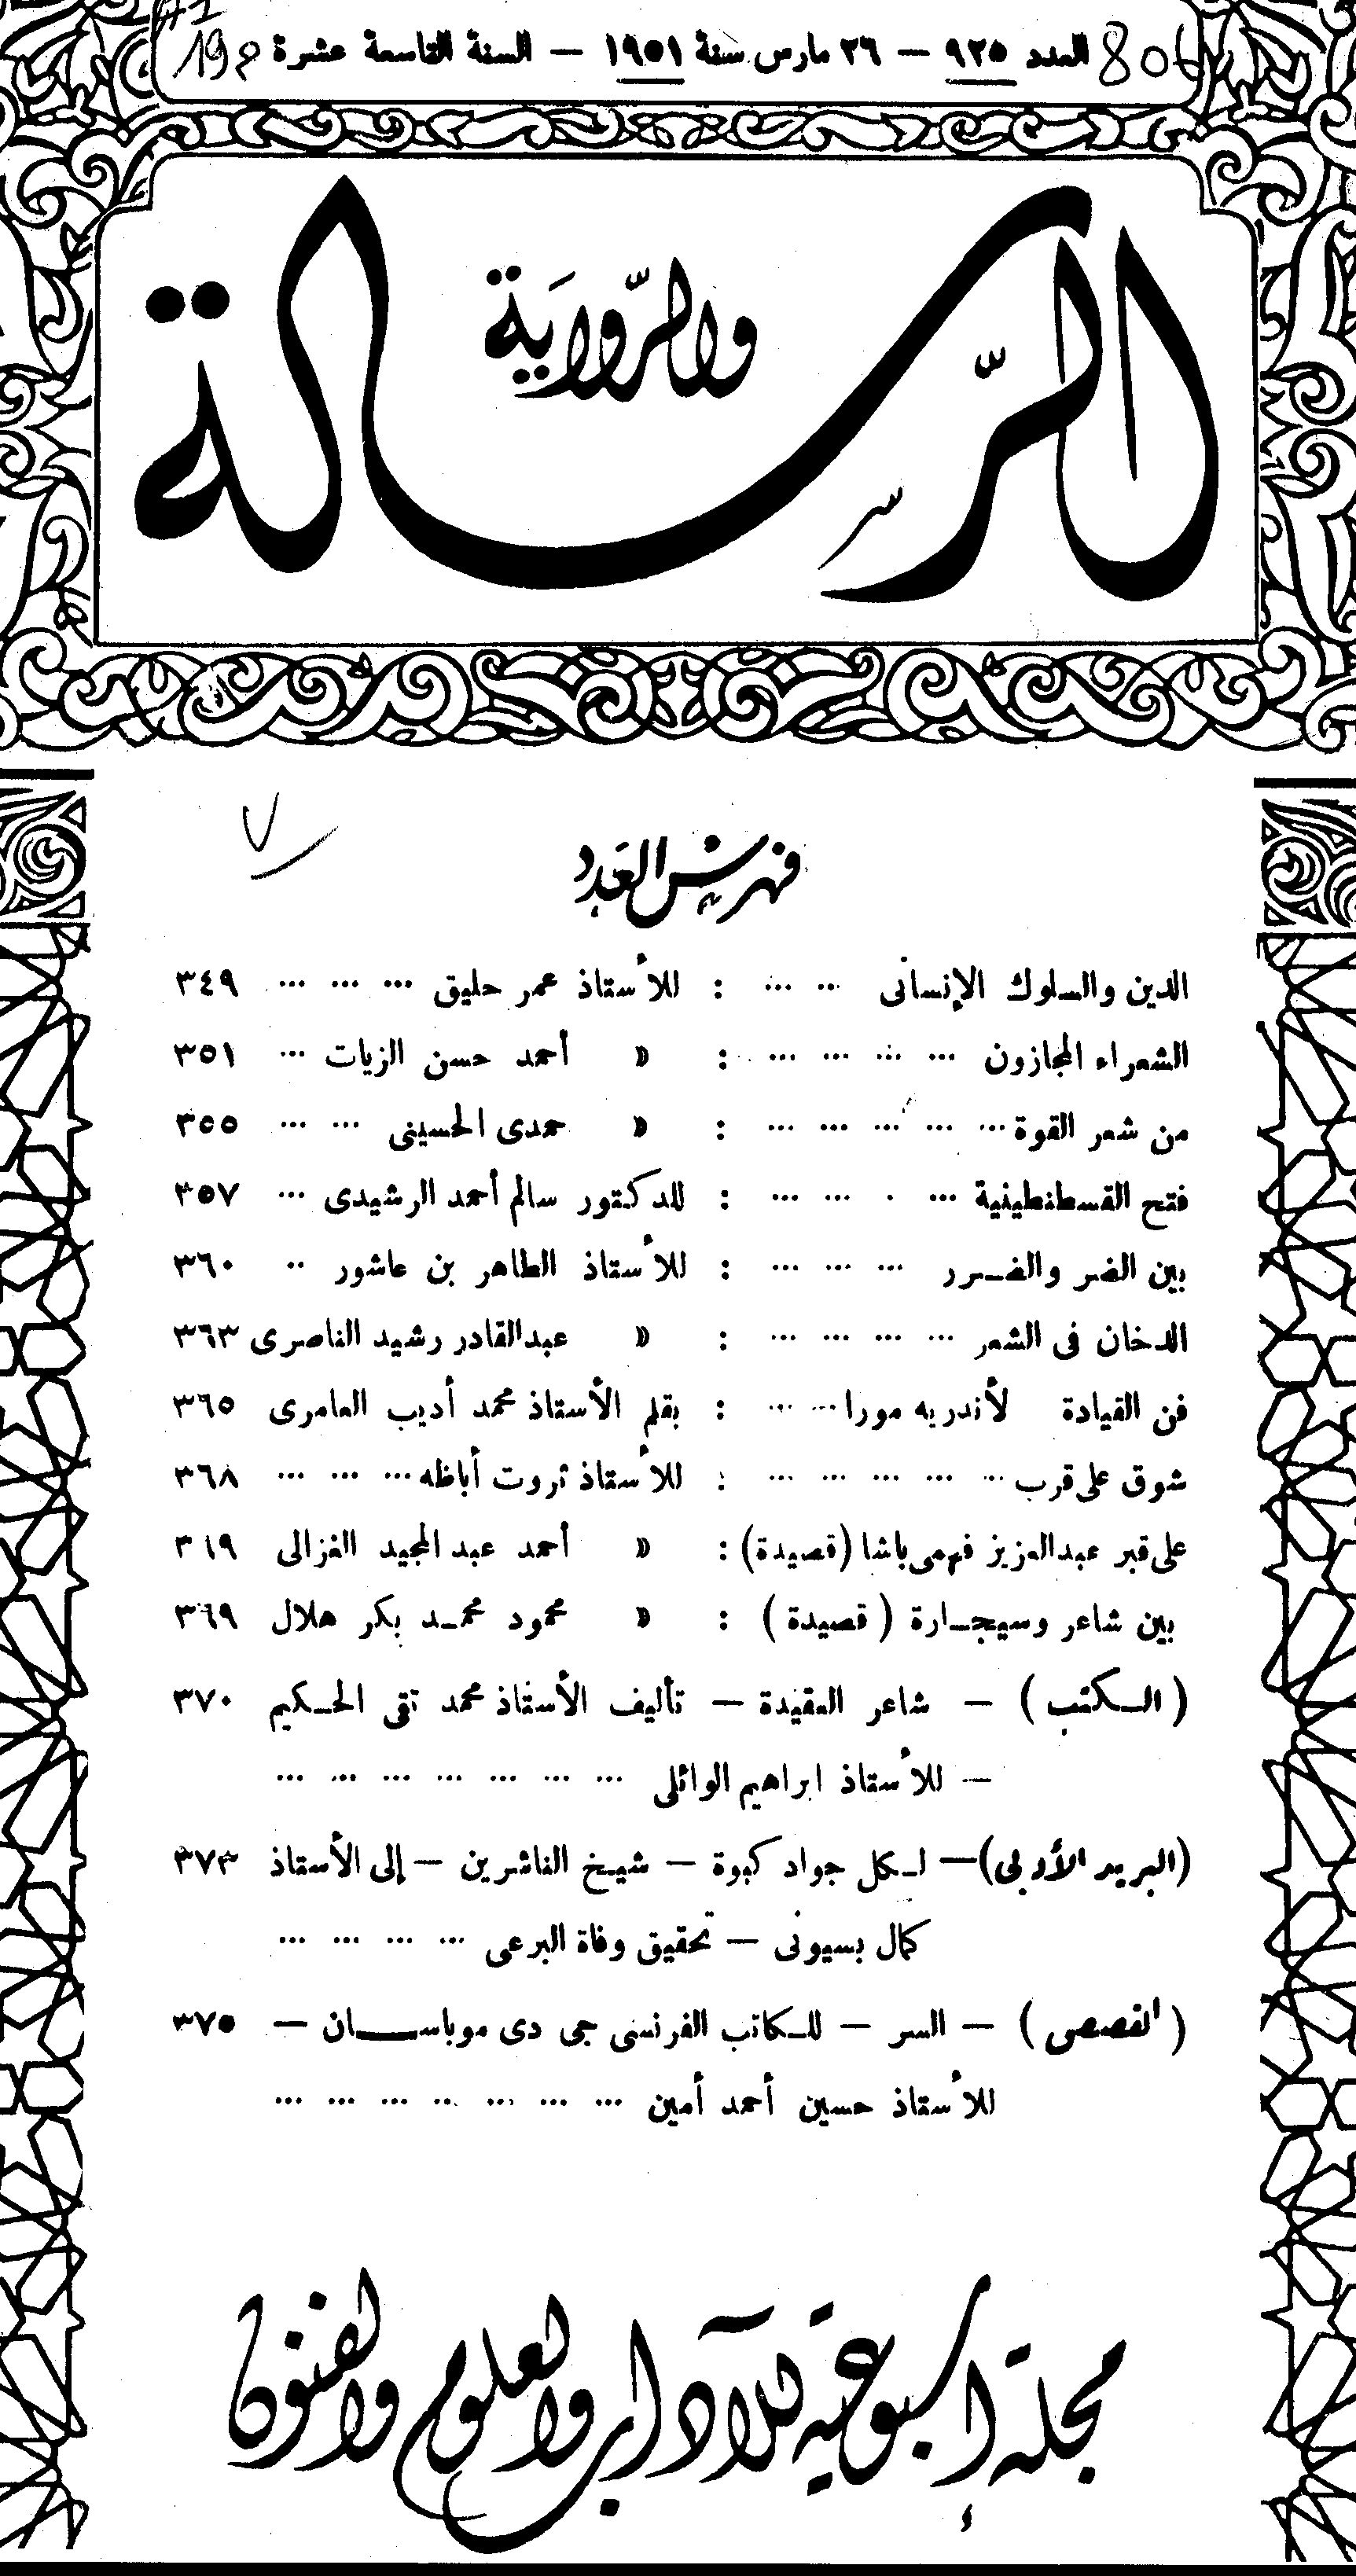 العدد ٩٢٥ — ٢٦ مارس سنة ١٩٥١ — السنة التاسعة عشرة
الرسالة
والرواية
فهرس العدد
الدين والسلوك الإنسانى ... ... : للأستاذ عمر حليق ... ... ... ٣٤٩
الشعراء المجازون ... ... ... ... : » أحمد حسن الزيات ... ٣٥١
من شعر القوة ... ... ... ... ... : » حمدى الحسينى ... ... ٣٥٥
فتح القسطنطينية ... . ... ... : للدكتور سالم أحمد الرشيدى ... ٣٥٧
بين الضر والضـرر ... ... ... : للأستاذ الطاهر بن عاشور .. ٣٦٠
الدخان فى الشعر ... ... ... ... : » عبدالقادر رشيد الناصرى ٣٦٣
فن القيادة لأندريه مورا ... ... : بقلم الأستاذ محمد أديب العامرى ٣٦٥
شوق على قرب ... ... ... ... ... : للأستاذ ثروت أباظه ... ... ... ٣٦٨
على قبر عبدالعزيز فهمى باشا (قصيدة) : » أحمد عبد المجيد الغزالى ٣٦٩
بين شاعر وسيجـارة ( قصيدة ) : » محمود محمـد بكر هلال ٣٦٩
( الـكتب ) — شاعر العقيدة — تأليف الأستاذ محمد تقى الحـكيم ٣٧٠
— للأستاذ ابراهيم الوائلى ... ... ... ... ... ... ...
(البريد الأدبى) — لـكل جواد كبوة — شيخ الناشرين — إلى الأستاذ ٣٧٣
كمال بسيونى — تحقيق وفاة البرعى ... ... ... ...
( القصص ) — السر — للـكاتب الفرنسى جى دى موباســان — ٣٧٥
للأستاذ حسين أحمد أمين ... ... ... ... ... ... ...
مجلة أسبوعية للآداب والعلوم والفنون